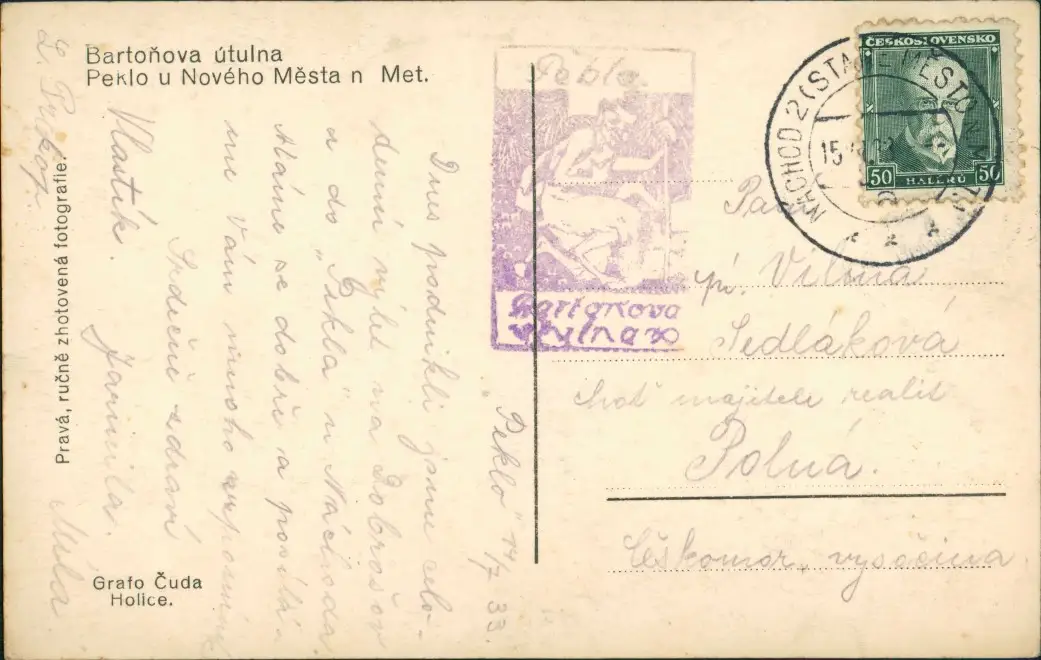 Bartoňova útulna
Peklo u Nového Města n Met.
Pravá, ručně zhotovená fotografie.
Grafo Čuda
Holice.
Peklo
Bartoňova
útulna
ČESKOSLOVENSKO
50 HALÉŘŮ 50
NÁCHOD 2 (STARÉ MĚSTO N. MET.)
15
"Peklo" 14/7 33.
Dnes podnikli jsme celo-
denní výlet na Dobrošov
a do "Pekla" u Náchoda.
Máme se dobře a posílá-
me Vám mnoho vzpomínek
Srdečně zdraví
Jarmila.
Vlastík.
Míla.
Pal.
pí. Vilma
Sedláková
choť majitele realit
Polná.
Českomor. vysočina